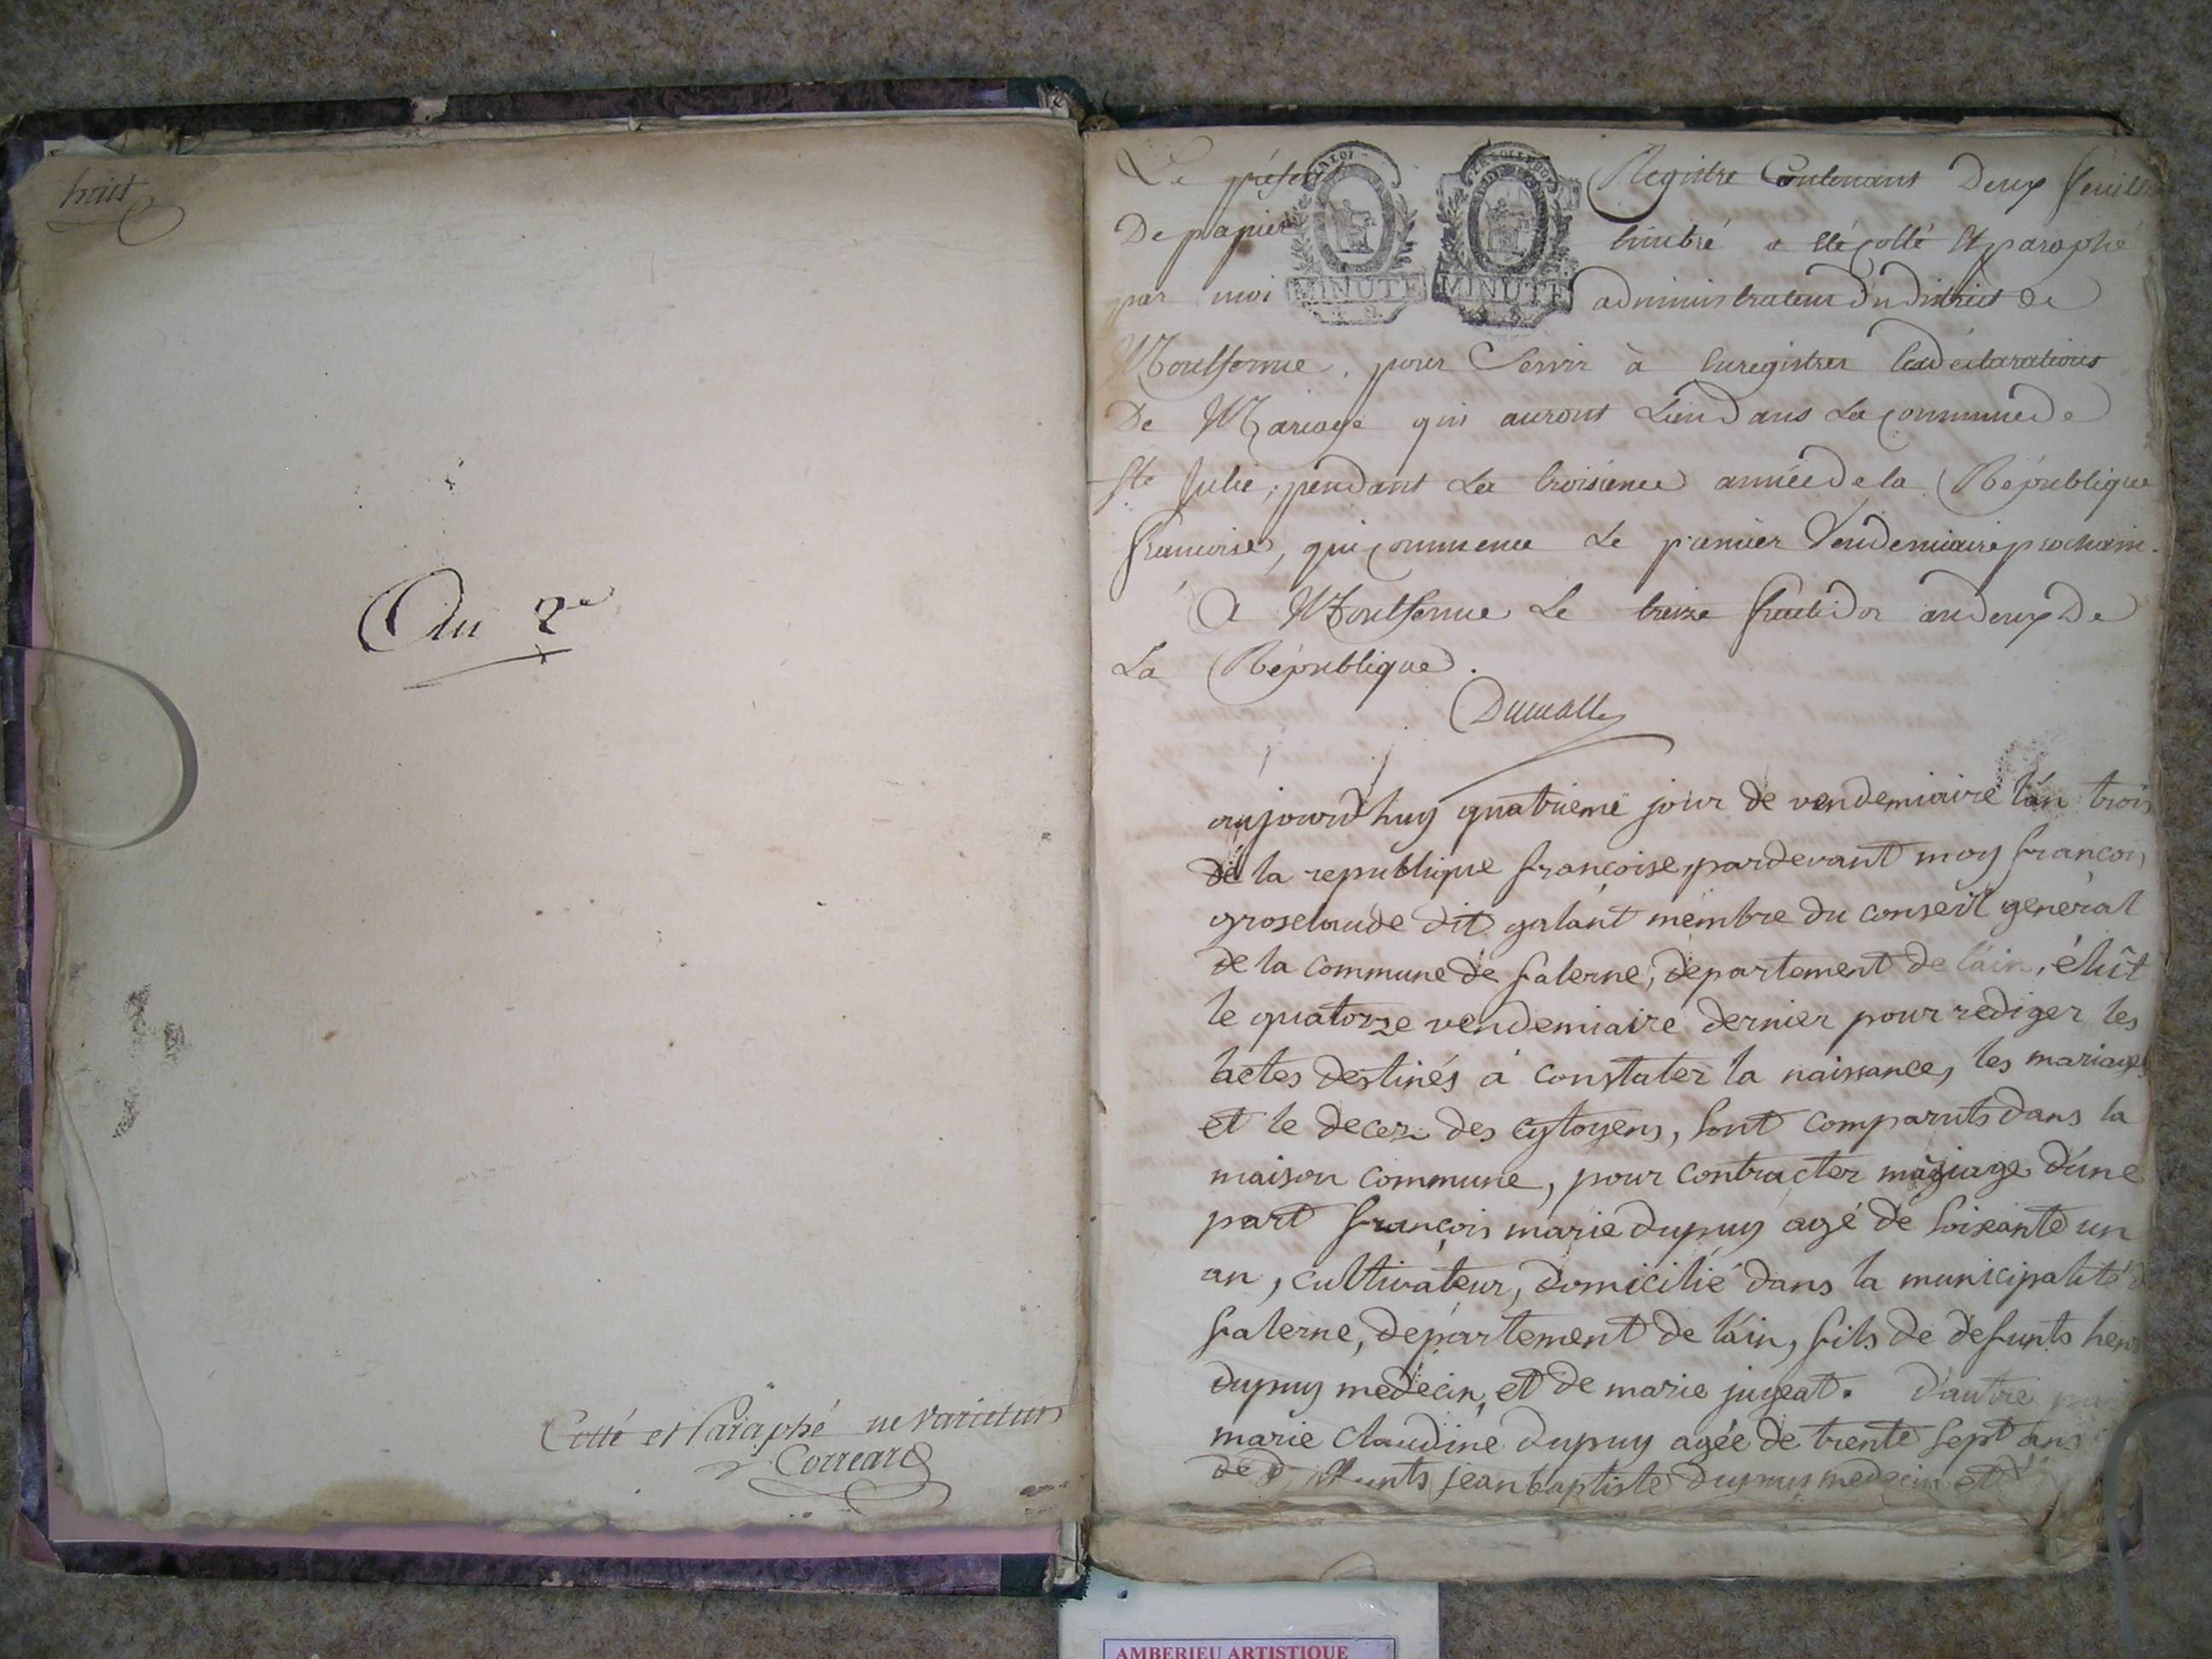 huit
An 2e
Cotté et Paraphé ne varietur
Correard
LA LOI
MINUTE
MINUTE
Le présent Registre Contenant Deux feuilles
De papier timbré a été cotté et paraphé
par moi administrateur du district de
Montferme, pour Servir à Enregistrer les déclarations
De Mariage qui auront Lieu dans La Commune de
Ste Julie, pendant La troisieme année de la République
francoise, qui commence Le premier Vendemiaire prochain.
A Montferme Le treize fructidor an deux De
La République.
aujourd'huy quatrieme jour de vendemiaire l'an trois
de la republique francoise, pardevant moy francois
groselaude dit galant membre du conseil general
de la commune de falerne, departement de l'ain, élüt
le quatorze vendemiaire dernier pour rediger les
actes destinés a constater la naissance, les mariages
et le decez des cytoyens, sont comparuts dans la
maison commune, pour contracter mariage d'une
part françois marie dupuy agé de soixante un
an, cultivateur, domicilié dans la municipalité
falerne, departement de l'ain, fils de defunts
dupuy medecin, et de marie jugeat. D'autre
marie claudine dupuy agée de trente sept ans
jean baptiste dupuy medecin et
AMBERIEU ARTISTIQUE